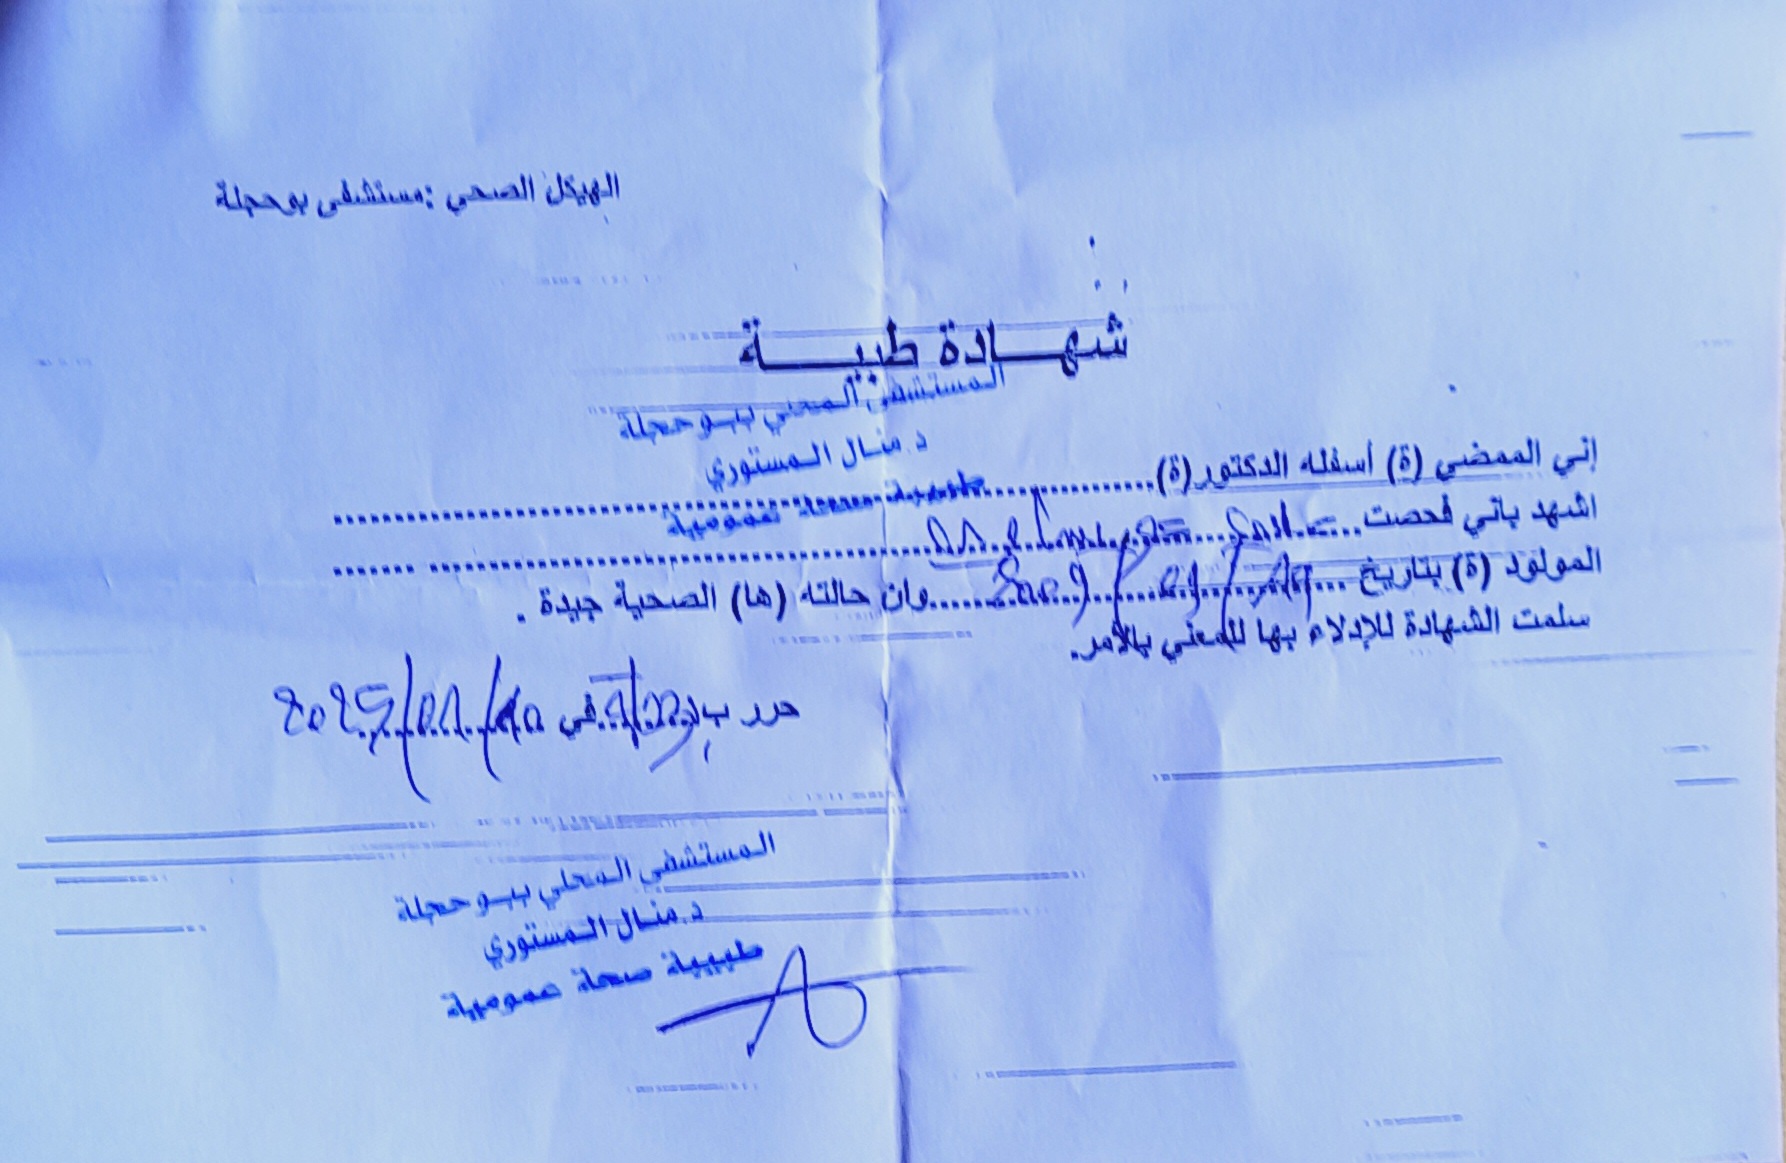 الهيكل الصحي : مستشفى بوحجلة
شهـــادة طبيـــــة
المستشفى المحلي ببوحجلة
د. منال المستوري
طبيبة صحة عمومية
إني الممضي (ة) أسفله الدكتور(ة)
اشهد باني فحصت
المولود (ة) بتاريخ وان حالته (ها) الصحية جيدة .
سلمت الشهادة للإدلاء بها للمعني بالأمر.
حرر ب في
المستشفى المحلي ببوحجلة
د. منال المستوري
طبيبة صحة عمومية